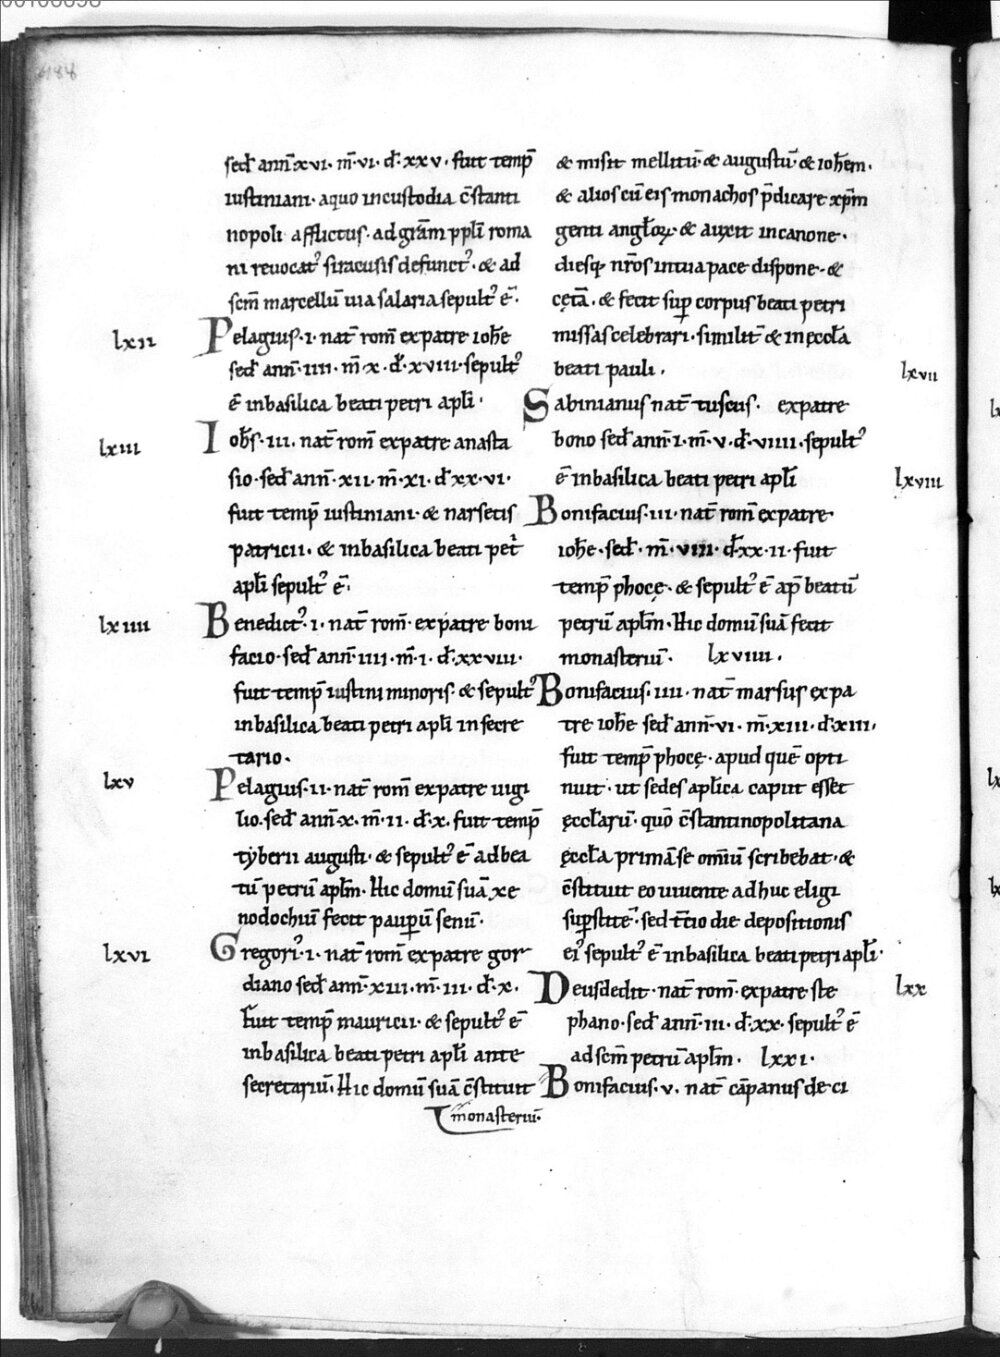 sed̄ ann̄ xvi· m̄·vi· d̄·xxv· fuit temp̄
iustiniani· aquo incustodia c̄stanti
nopoli afflictus· ad grām ppl̄i roma
ni reuocat᷒ siracusis defunct᷒· & ad
sc̄m marcellū uia salaria sepult᷒ ē·
lxii
Pelagius·i· nat̄ rom̄ expatre ioh̄e
sed̄ ann̄·iiii· m̄·x· d̄·xviii· sepult᷒
ē inbasilica beati petri apl̄i·
lxiii
Ioh̄s·iii· nat̄ rom̄ expatre anasta
sio· sed̄ ann̄·xii· m̄·xi· d̄·xx·vi·
fuit temp̄ iustiniani· & narsetis
patricii· & inbasilica beati pet̄
apl̄i sepult᷒ ē·
lxiiii
Benedict᷒·i· nat̄ rom̄· expatre boni
facio· sed̄ ann̄·iiii· m̄·i· d̄·xxviii·
fuit temp̄ iustini minoris· & sepult᷒
inbasilica beati petri apl̄i in secre
tario·
lxv
Pelagius·ii· nat̄ rom̄ expatre uigi
lio· sed̄ ann̄·x· m̄·ii· d̄·x· fuit temp̄
tẏberii augusti· & sepult᷒ ē ad bea
tū petrū apl̄m· Hic domū suā xe
nodochiū fecit pauꝑū senū·
lxvi
Gregori᷒·i· nat̄ rom̄ expatre gor
diano sed̄ ann̄·xiii· m̄·iii· d̄·x·
fuit temp̄ mauricii· & sepult᷒ ē
inbasilica beati petri apl̄i ante
secretariū· Hic domū suā c̄stituit
monasteriū·
& misit mellitū & augustū & ioh̄em·
& alios cū eis monachos p̄dicare xp̄m
genti angl̄oꝝ & auxit incanone·
diesq; nr̄os intua pace dispone· &
cętā· & fecit suꝑ corpus beati petri
missas celebrari· similit̄ & in ęccl̄a
beati pauli·
lxvii
Sabinianus nat̄ tuscus· expatre
bono sed̄ ann̄·i· m̄·v· d̄·viiii· sepult᷒
ē inbasilica beati petri apl̄i
lxviii
Bonifacius·iii· nat̄ rom̄ expatre
ioh̄e· sed̄· m̄·viii· d̄·xx·ii· fuit
temp̄ phocę· & sepult᷒ ē ap̄ beatū
petrū apl̄m· Hic domū suā fecit
monasteriū· lxviiii·
Bonifacius·iiii· nat̄ marsus expa
tre ioh̄e sed̄ ann̄·vi· m̄·xiii· d̄·xiii·
fuit temp̄ phocę· apud quē opti
nuit· ut sedes apl̄ica caput esset
ęccl̄arū· quō c̄stantinopolitana
ęccl̄a primā se om̄iū scribebat· &
c̄stituit eo uiuente adhuc eligi
suꝑstitē· sed t̄cio die depositionis
ei᷒ sepult᷒ ē inbasilica beati petri apl̄i·
lxx
Deusdedit· nat̄ rom̄· expatre ste
phano· sed̄ ann̄·iii· d̄·xx· sepult᷒ ē
ad sc̄m petrū apl̄m· lxxi·
Bonifacius·v· nat̄ cāpanus de ci